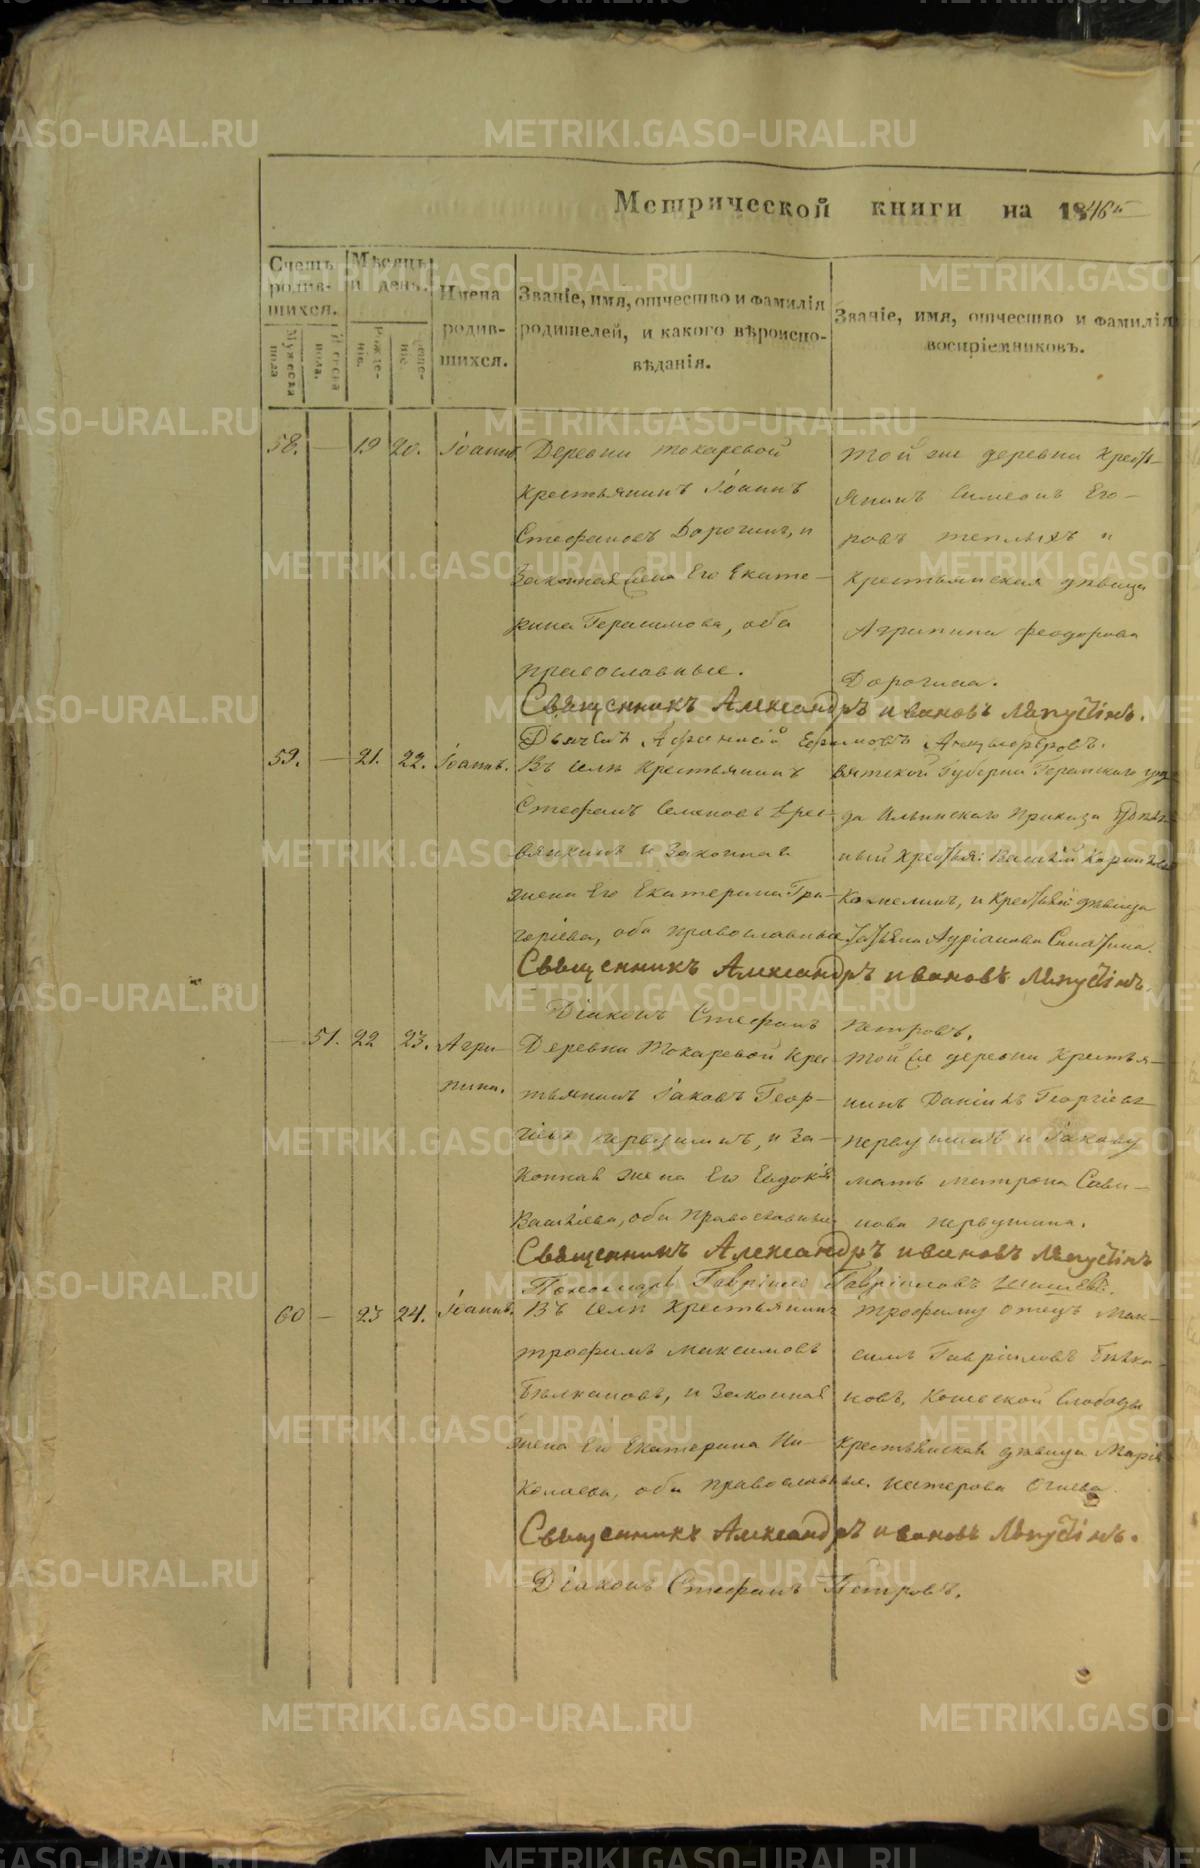 Метрической книги на 1846й
Счетъ родив-шихся.
Мѣсяцъ и день.
Имена родив-шихся.
Званіе, имя, отчество и фамилія
родителей, и какого вѣроиспо-
вѣданія.
Званіе, имя, отчество и фамилія
воспріемниковъ.
Мужеска пола
Женска пола.
Рожде-нія.
Креще-нія.
58. — 19 20. Іоаннъ.
Деревни Токаревой
крестьянинъ Іоаннъ
Стефановъ Дорогинъ, и
законная жена Его Екате-
рина Герасимова, оба
православные.
Той же деревни крестья-
янинъ Симеонъ Его-
ровъ Теплыхъ и
крестьянская дѣвица
Агрипина Феодорова
Дорогина.
Священникъ Александръ Ивановъ Ляпустинъ.
Дьячекъ Афанасій Ефимовъ
59. — 21. 22. Іоаннъ.
Въ селѣ крестьянинъ
Стефанъ Семеновъ
и законная
жена Его Екатерина Гри-
горіева, оба православные
Вятской Губерніи
да Ильинскаго Приказа Удѣль-
ный крестья:
и крестьян: дѣвица
Татьяна Адріанова
Священникъ Александръ Ивановъ Ляпустинъ.
Діаконъ Стефанъ Петровъ.
— 51. 22 23. Агри-
пина.
Деревни Токаревой крес-
тьянинъ Іаковъ Геор-
гіевъ Первушинъ, и за-
конная жена Его Евдокія
Васильева, оба православные
Той же деревни крестья-
нинъ Даніилъ Георгіевъ
Первушинъ и Іакову
мать Матрона Сави-
нова Первушина.
Священникъ Александръ Ивановъ Ляпустинъ
Пономарь Гавріилъ Гавріиловъ
60 — 23 24. Іоаннъ.
Въ селѣ крестьянинъ
Трофимъ Максимовъ
и законная
жена Его Екатерина Ни-
колаева, оба православные.
Трофиму отецъ Мак-
симъ Гавріиловъ
слободы
крестьянская дѣвица Марія
Нестерова
Священникъ Александръ Ивановъ Ляпустинъ.
Діаконъ Стефанъ Петровъ.
METRIKI.GASO-URAL.RU